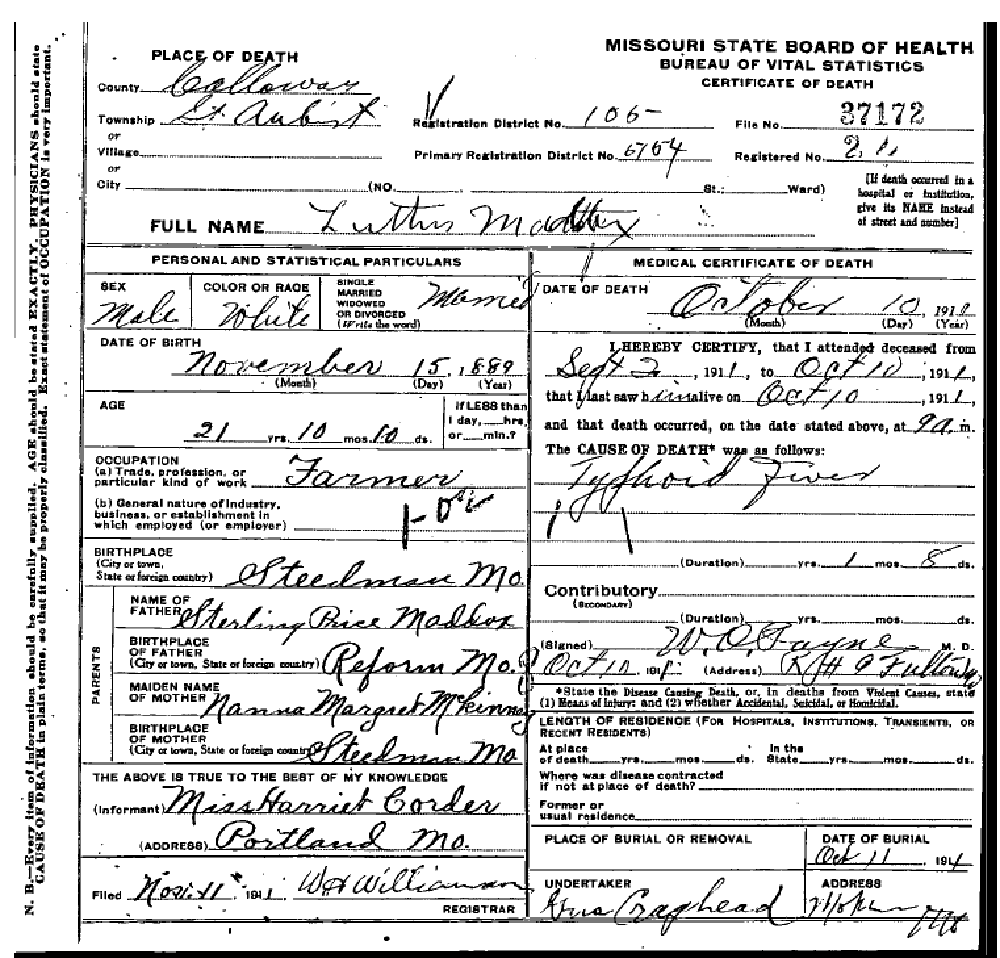 MISSOURI STATE BOARD OF HEALTH
BUREAU OF VITAL STATISTICS
CERTIFICATE OF DEATH
PLACE OF DEATH
County Calloway
Township St. Aubert
or
Village
or
City (NO. St.; Ward)
Registration District No. 105
Primary Registration District No. 6764
File No. 37172
Registered No. 21
[If death occurred in a
hospital or institution,
give its NAME instead
of street and number]
FULL NAME Luther Maddox
PERSONAL AND STATISTICAL PARTICULARS
SEX
Male
COLOR OR RACE
White
SINGLE
MARRIED
WIDOWED
OR DIVORCED
(Write the word)
Married
DATE OF BIRTH
November 15, 1889
(Month) (Day) (Year)
AGE
21 yrs. 10 mos. 10 ds.
If LESS than
1 day, hrs.
or min.?
OCCUPATION
(a) Trade, profession, or
particular kind of work Farmer
(b) General nature of industry,
business, or establishment in
which employed (or employer)
BIRTHPLACE
(City or town,
State or foreign country) Steedman Mo.
PARENTS
NAME OF
FATHER Sterling Price Maddox
BIRTHPLACE
OF FATHER
(City or town, State or foreign country) Reform Mo.
MAIDEN NAME
OF MOTHER Nanna Margret McKinney
BIRTHPLACE
OF MOTHER
(City or town, State or foreign country) Steedman Mo
THE ABOVE IS TRUE TO THE BEST OF MY KNOWLEDGE
(Informant) Miss Harriet Corder
(ADDRESS) Portland Mo.
Filed Nov. 11 1911 W H Williamson
REGISTRAR
MEDICAL CERTIFICATE OF DEATH
DATE OF DEATH
October 10, 1911
(Month) (Day) (Year)
I HEREBY CERTIFY, that I attended deceased from
Sept 2, 1911, to Oct 10, 1911,
that I last saw him alive on Oct 10, 1911,
and that death occurred, on the date stated above, at 9 a. m.
The CAUSE OF DEATH* was as follows:
Typhoid Fever
(Duration) yrs. 1 mos. 8 ds.
Contributory
(SECONDARY)
(Duration) yrs. mos. ds.
(Signed) W. O. Payne M. D.
Oct 10 191 (Address) Fulton Mo
*State the Disease Causing Death, or, in deaths from Violent Causes, state
(1) Means of Injury; and (2) whether Accidental, Suicidal, or Homicidal.
LENGTH OF RESIDENCE (FOR HOSPITALS, INSTITUTIONS, TRANSIENTS, OR
RECENT RESIDENTS)
At place
of death yrs. mos. ds.
In the
State yrs. mos. ds.
Where was disease contracted
if not at place of death?
Former or
usual residence
PLACE OF BURIAL OR REMOVAL
DATE OF BURIAL
Oct 11, 191
UNDERTAKER
Craghead
ADDRESS
Mo
N. B.—Every item of information should be carefully supplied. AGE should be stated EXACTLY. PHYSICIANS should state
CAUSE OF DEATH in plain terms, so that it may be properly classified. Exact statement of OCCUPATION is very important.